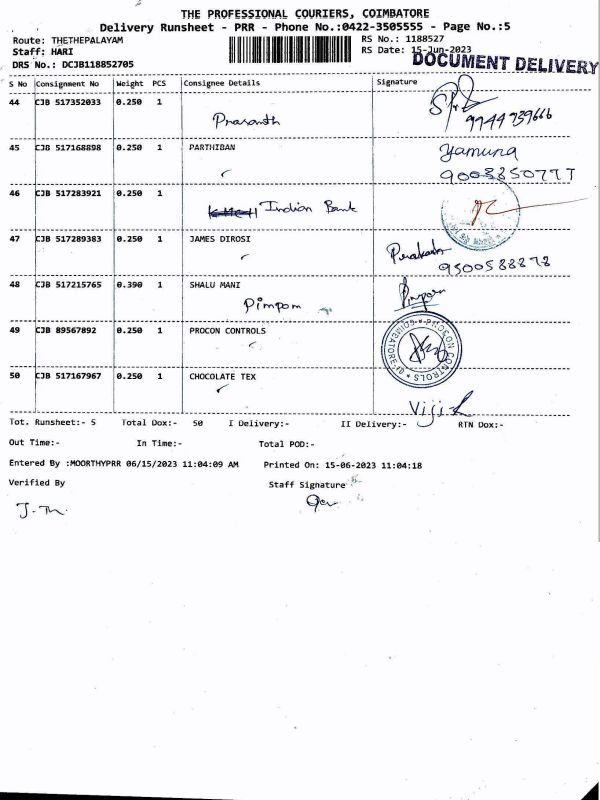 THE PROFESSIONAL COURIERS, COIMBATORE
Delivery Runsheet - PRR - Phone No.:0422-3505555 - Page No.:5
Route: THETHEPALAYAM RS No.: 1188527
Staff: HARI RS Date: 15-Jun-2023
DOCUMENT DELIVERY
DRS No.: DCJB118852705
S No Consignment No Weight PCS Consignee Details Signature
44 CJB 517352033 0.250 1
Prasanth 9944739666
45 CJB 517168898 0.250 1 PARTHIBAN Yamuna
9003350777
46 CJB 517283921 0.250 1
Indian Bank
47 CJB 517289383 0.250 1 JAMES DIROSI Prakash
9500588878
48 CJB 517215765 0.390 1 SHALU MANI
Pimpom Pimpom
49 CJB 89567892 0.250 1 PROCON CONTROLS
PROCON CONTROLS * COIMBATORE
50 CJB 517167967 0.250 1 CHOCOLATE TEX
Viji
Tot. Runsheet:- 5 Total Dox:- 50 I Delivery:- II Delivery:- RTN Dox:-
Out Time:- In Time:- Total POD:-
Entered By :MOORTHYPRR 06/15/2023 11:04:09 AM Printed On: 15-06-2023 11:04:18
Verified By Staff Signature